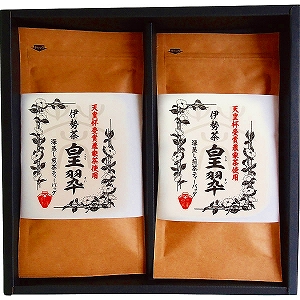 天皇杯受賞農家茶使用
伊勢茶
皇翠
深蒸し煎茶ティーバッグ
天皇杯受賞農家茶使用
伊勢茶
皇翠
深蒸し煎茶ティーバッグ